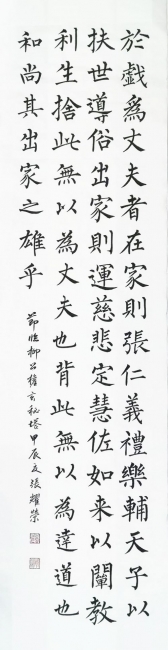 於戲為丈夫者在家則張仁義禮樂輔天子以
扶世導俗出家則運慈悲定慧佐如來以闡教
利生捨此無以為丈夫也背此無以為達道也
和尚其出家之雄乎
節臨柳公權玄秘塔甲辰夏張耀榮